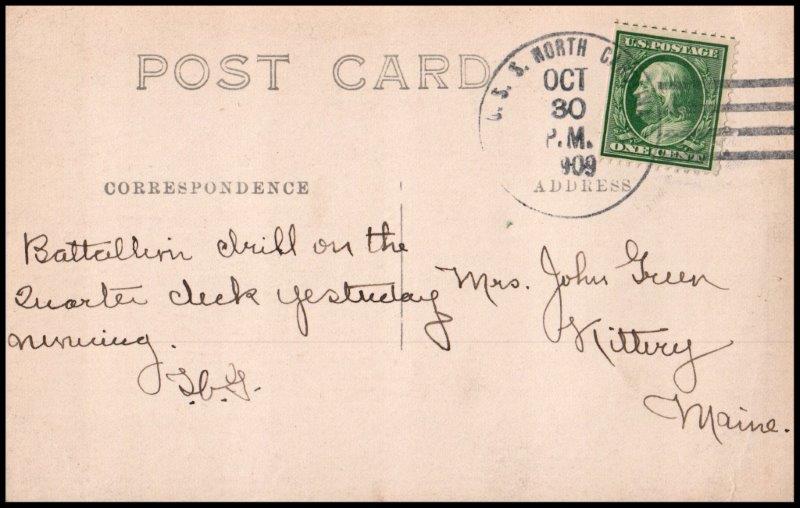 POST CARD
U.S.S. NORTH C
OCT
30
P.M.
1909
U.S. POSTAGE
ONE CENT
CORRESPONDENCE
ADDRESS
Battallion drill on the
Quarter deck yesterday
morning.
Mrs. John Green
Kittery
Maine.